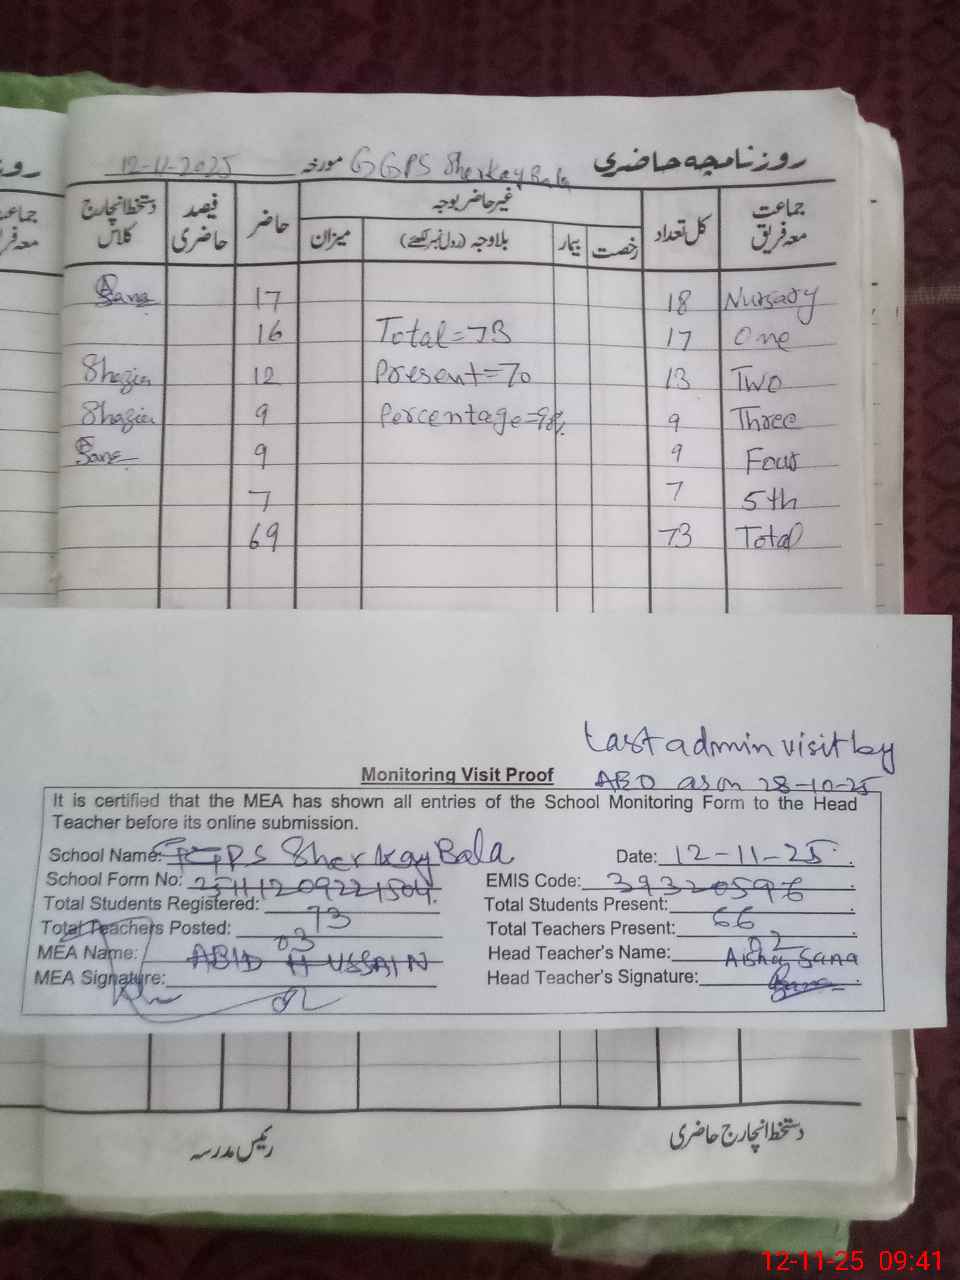 روزنامچہ حاضری GGPS Sherkay Bala مورخہ 12-11-2025
جماعت معہ فریق کل تعداد غیر حاضر بوجہ حاضر فیصد حاضری دستخط انچارج کلاس
رخصت بیمار بلاوجہ (رول نمبر لکھئے) میزان
Nursary 18 17 Sana
One 17 Total=73 16
Two 13 Present=70 12 Shazia
Three 9 Percentage=98% 9 Shazia
Four 9 9 Sana
5th 7 7
Total 73 69
Last admin visit by
as on 28-10-25
Monitoring Visit Proof
It is certified that the MEA has shown all entries of the School Monitoring Form to the Head
Teacher before its online submission.
School Name: GGPS Sherkay Bala Date: 12-11-25
School Form No: EMIS Code:
Total Students Registered: 73 Total Students Present: 66
Total Teachers Posted: 03 Total Teachers Present: 02
MEA Name: ABID HUSSAIN Head Teacher's Name: Aisha Sana
MEA Signature: Head Teacher's Signature: Sana
دستخط انچارج حاضری رئیس مدرسہ
12-11-25 09:41